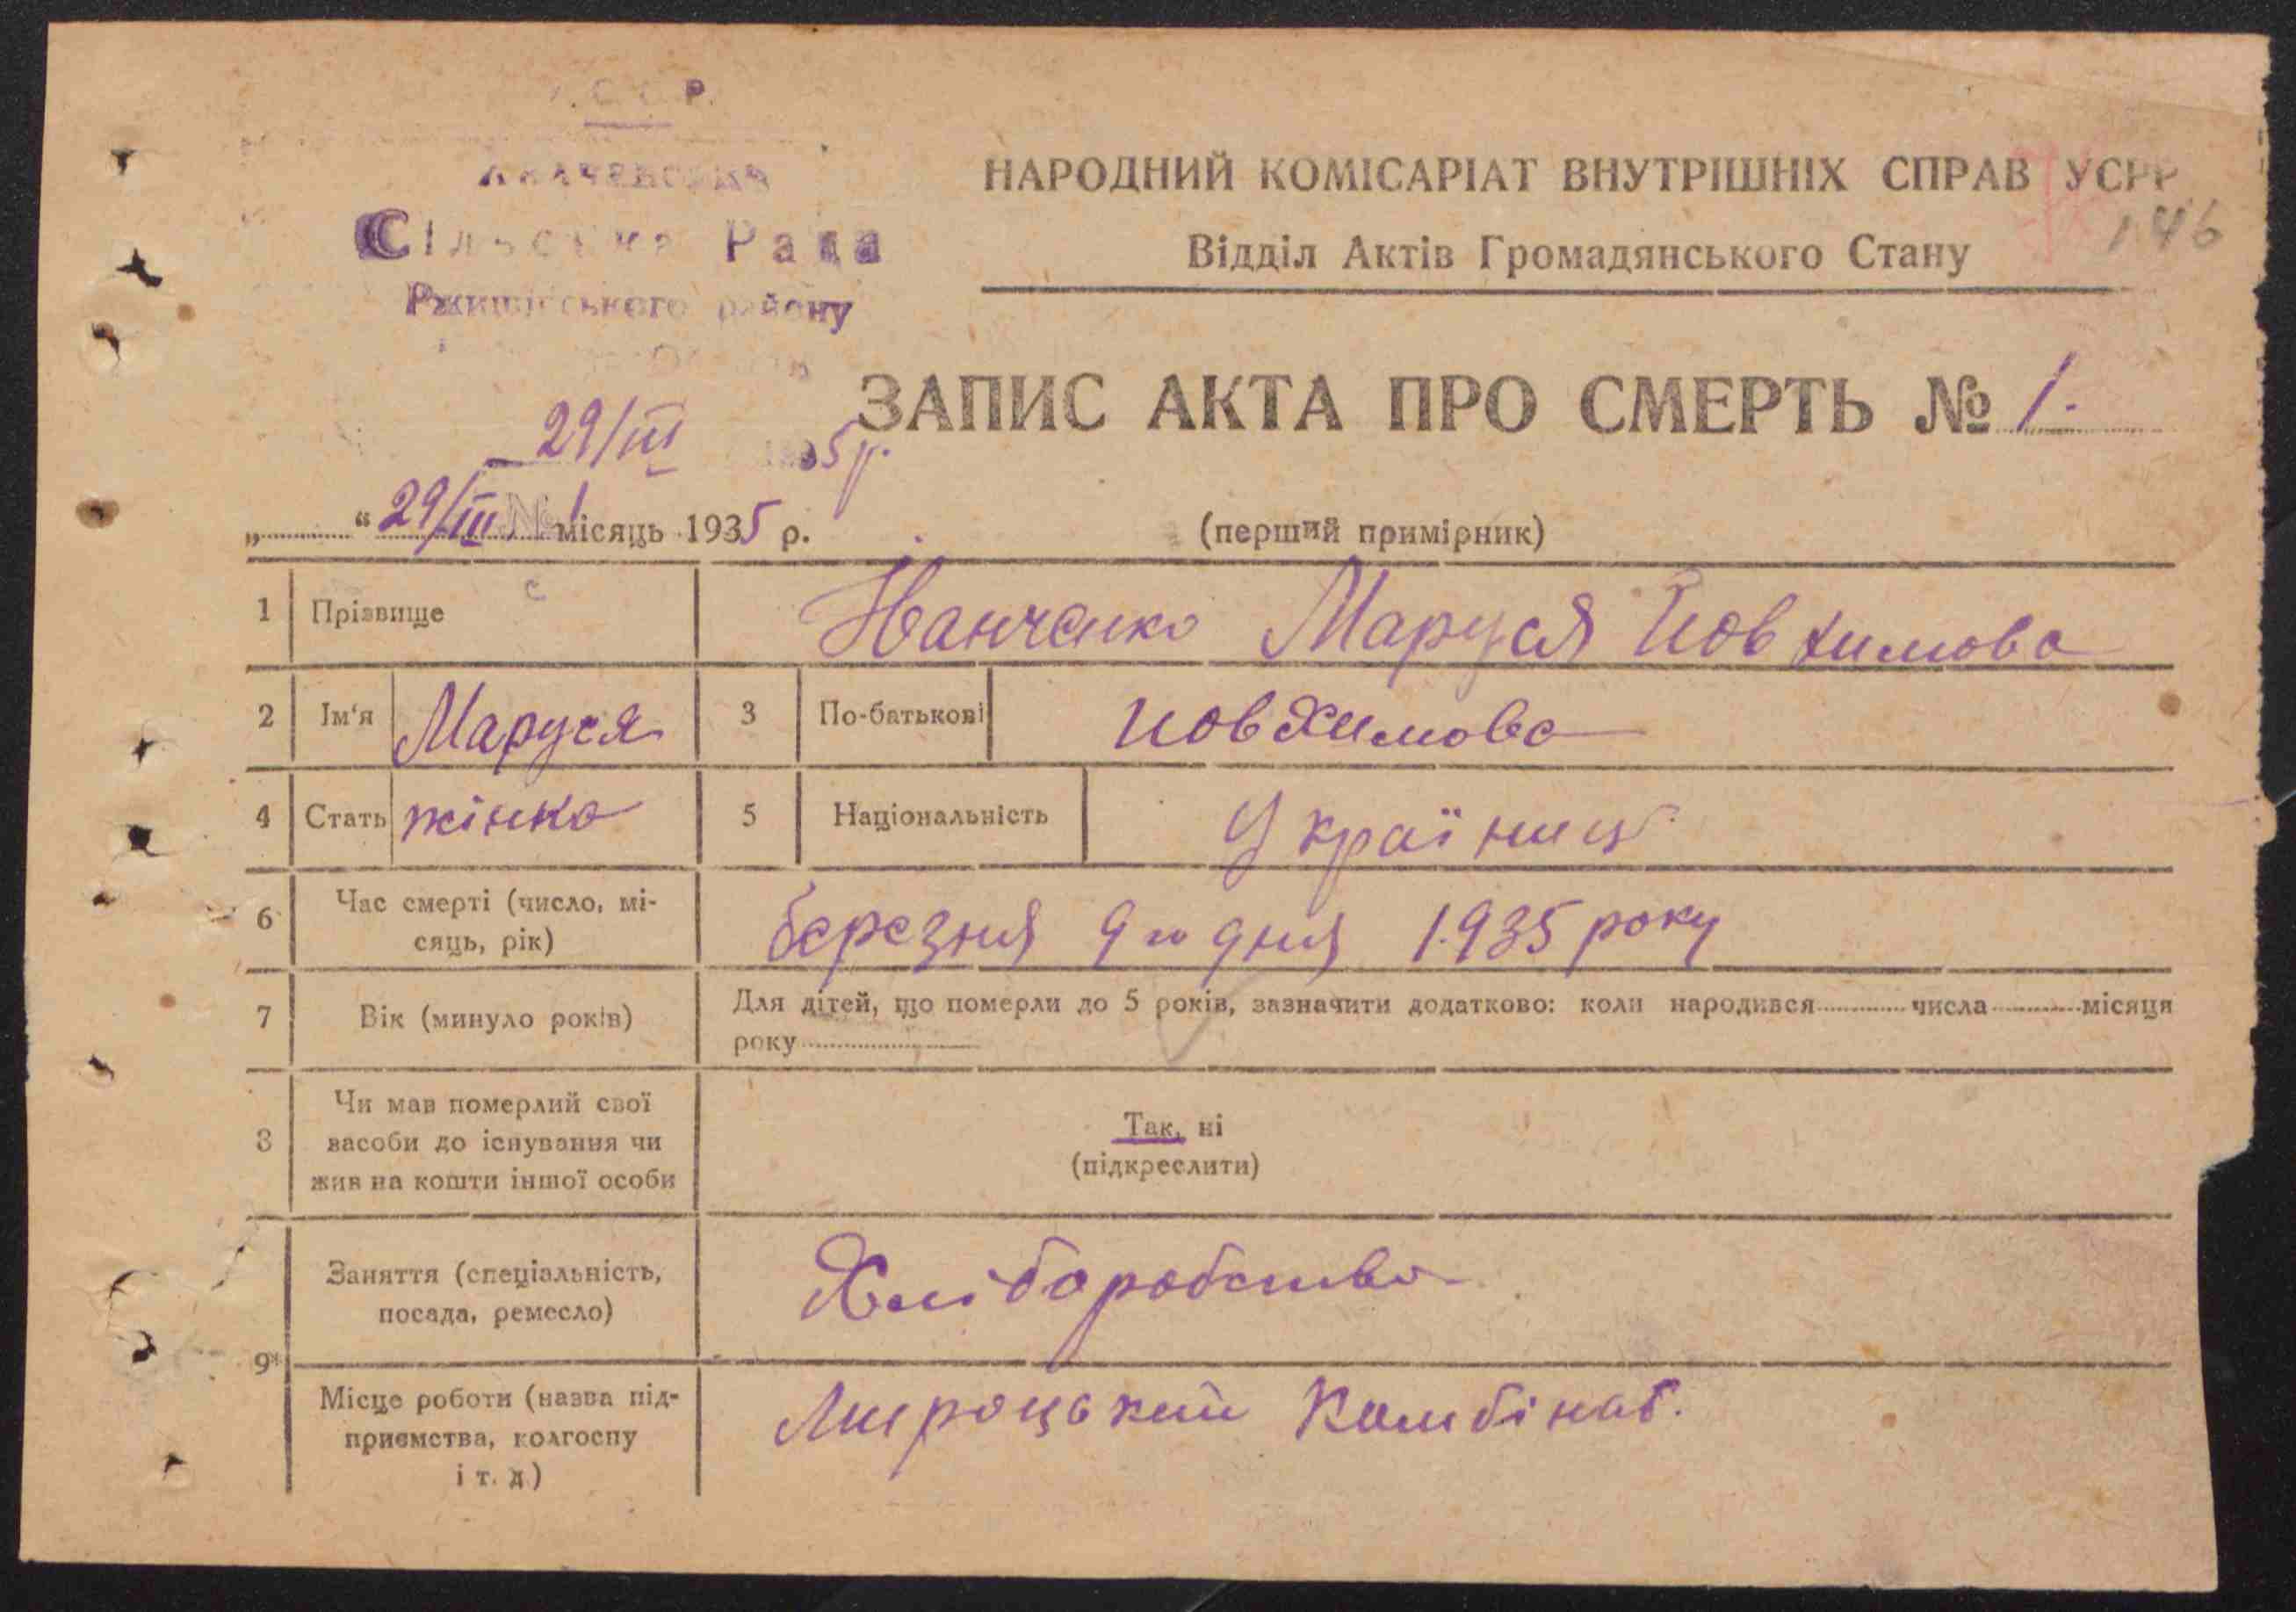 Р.
Сільська Рада
Ржищівського району
НАРОДНИЙ КОМІСАРІАТ ВНУТРІШНІХ СПРАВ УСРР
146
Відділ Актів Громадянського Стану
ЗАПИС АКТА ПРО СМЕРТЬ № 1.
29/III 1935 р.
„ “ 29/III № 1 місяць 1935 р.
(перший примірник)
1 Прізвище Іванченко Маруся Йовхимова
2 Ім‘я Маруся 3 По-батькові Йовхимова
4 Стать жінка 5 Національність Україниц
6 Час смерті (число, мі-
сяць, рік) березня 9го дня 1935 року
7 Вік (минуло років) Для дітей, що померли до 5 років, зазначити додатково: коли народився числа місяця
року
8 Чи мав померлий свої
засоби до існування чи
жив на кошти іншої особи
Так, ні
(підкреслити)
9 Заняття (спеціальність,
посада, ремесло) Хліборобство
Місце роботи (назва під-
приємства, колгоспу
і т. д.)
Мироцький Комбінат.